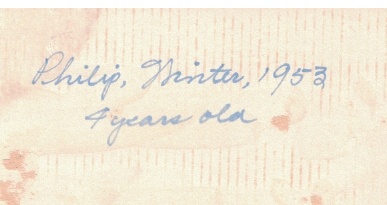 Philip, Winter, 1953
4 years old